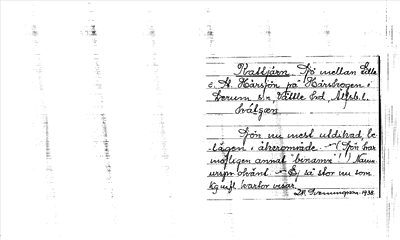 Kalltjärn. Sjö mellan Lilla
o. St. Härsjön på Härskogen i
Lerum s:n, Vättle hd, Älvsb. l.
Sjön nu mest utdikad, be-
lägen i åkerområde. – (Sjön har
möjligen annat benämn.!) Namn
urspr. okänt. – Ej så stor nu som
kartor visar.
1938